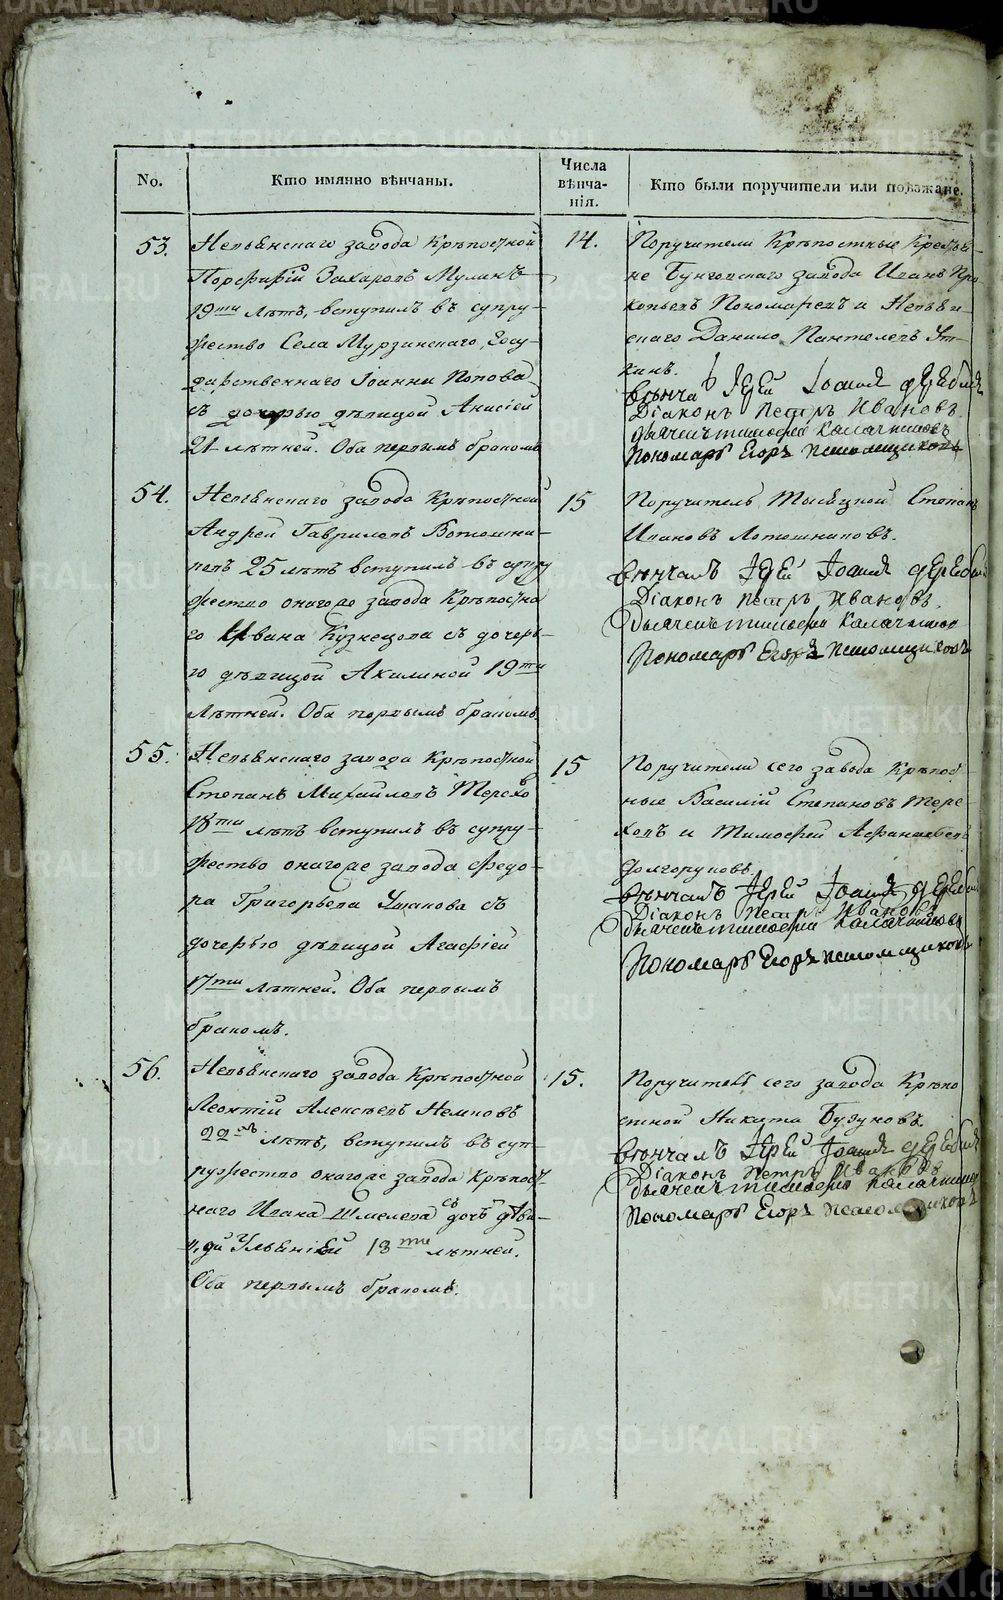 No.
Кто имянно вѣнчаны.
Числа
вѣнча-
нія.
Кто были поручители или поѣзжане.
53.
Невьянскаго завода Крѣпостной
Порфирій Захаровъ Мулинъ
19ти лѣтъ, вступилъ въ супру-
жество Села Мурзинскаго, Госу-
дарственнаго Іоанна Попова
съ дочерью дѣвицой Анисіей
21 лѣтней. Оба первымъ бракомъ
14.
Поручители Крѣпостные Крестья-
не Бунговскаго завода Иванъ Про-
копьевъ Пономаревъ и Невьян-
скаго Данило Пантелеевъ Ут-
кинъ.
вѣнча Іерей Іоаннъ
Діаконъ Петръ Ивановъ
дьячекъ тимофей Калачниковъ
Пономарь Егоръ
54.
Невьянскаго завода Крѣпостной
Андрей Гавриловъ
25 лѣтъ вступилъ въ супру
жество онагоже завода Крѣпостна
го Ивана Кузнецова съ дочерь-
ю дѣвицой Акилиной 19ти
лѣтней. Оба первымъ бракомъ.
15
Поручитель Тысяцкой Степанъ
Ивановъ Лотошниковъ.
вѣнчалъ Іерей Іоаннъ
Діаконъ Петръ Ивановъ.
дьячекъ тимофей Калачников
Пономарь Егоръ
55.
Невьянскаго завода Крѣпостной
Степанъ Михайловъ Терехо
въ
18ти лѣтъ вступилъ въ супру-
жество онагоже завода Федо-
ра Григорьева Ушакова съ
дочерью дѣвицой Агафіей
17ти лѣтней. Оба первымъ
бракомъ.
15
Поручители сего завода Крѣпост-
ные Василій Степановъ Тере-
ховъ и Тимофей Афанасьевъ
Долгоруковъ.
вѣнчалъ Іерей Іоаннъ
Діаконъ Петръ Ивановъ
дьячекъ тимофей Калачниковъ
Пономарь Егоръ
56.
Невьянскаго завода Крѣпостной
Леонтій Алексѣевъ
22хъ лѣтъ, вступилъ въ суп-
ружество онагоже завода Крѣпост-
наго Ивана Шмелева съ доч дѣви-
цой Ульяніей 18ти лѣтней.
Оба первымъ бракомъ.
15.
Поручитель сего завода Крѣпо
стной Никита Бузуновъ.
вѣнчалъ Іерей Іоаннъ
Діаконъ Петръ Ивановъ
дьячекъ тимофей Калачников
Пономарь Егоръ
METRIKI.GASO-URAL.RU